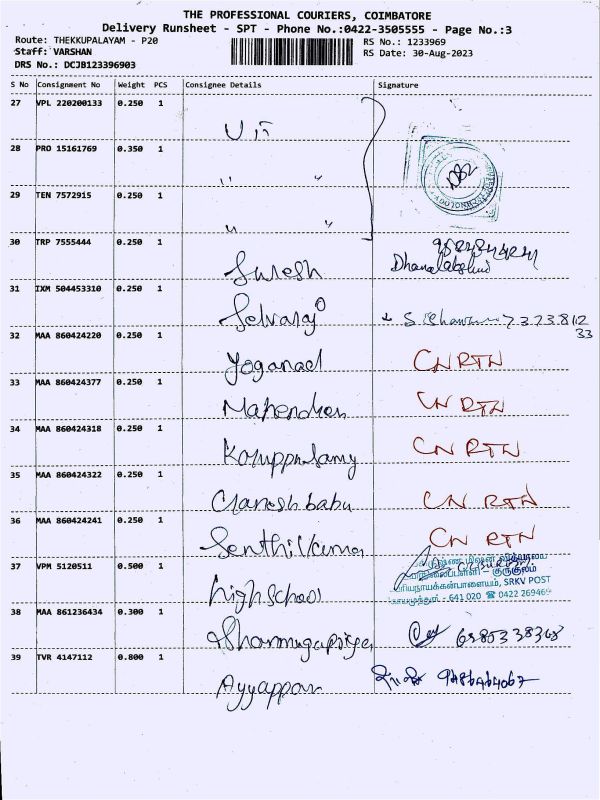 THE PROFESSIONAL COURIERS, COIMBATORE
Delivery Runsheet - SPT - Phone No.:0422-3505555 - Page No.:3
Route: THEKKUPALAYAM - P20
Staff: VARSHAN
DRS No.: DCJB123396903
RS No.: 1233969
RS Date: 30-Aug-2023
S No Consignment No Weight PCS Consignee Details Signature
27 VPL 220200133 0.250 1
28 PRO 15161769 0.350 1 " "
29 TEN 7572915 0.250 1 " "
30 TRP 7555444 0.250 1 Suresh Dhanalakshmi
31 IXM 504453310 0.250 1 Selvaraj 73738112
33
32 MAA 860424220 0.250 1 Yoganad CN RTN
33 MAA 860424377 0.250 1 Mahendran CN RTN
34 MAA 860424318 0.250 1 Karuppusamy CN RTN
35 MAA 860424322 0.250 1 Ganesh babu CN RTN
36 MAA 860424241 0.250 1 Senthil Kumar CN RTN
37 VPM 5120511 0.500 1 high School
குருகுலம்
SRKV POST
- 641 020 ☎ 0422 269469
38 MAA 861236434 0.300 1 Shanmugapriya 6385338368
39 TVR 4147112 0.800 1 Ayyappan